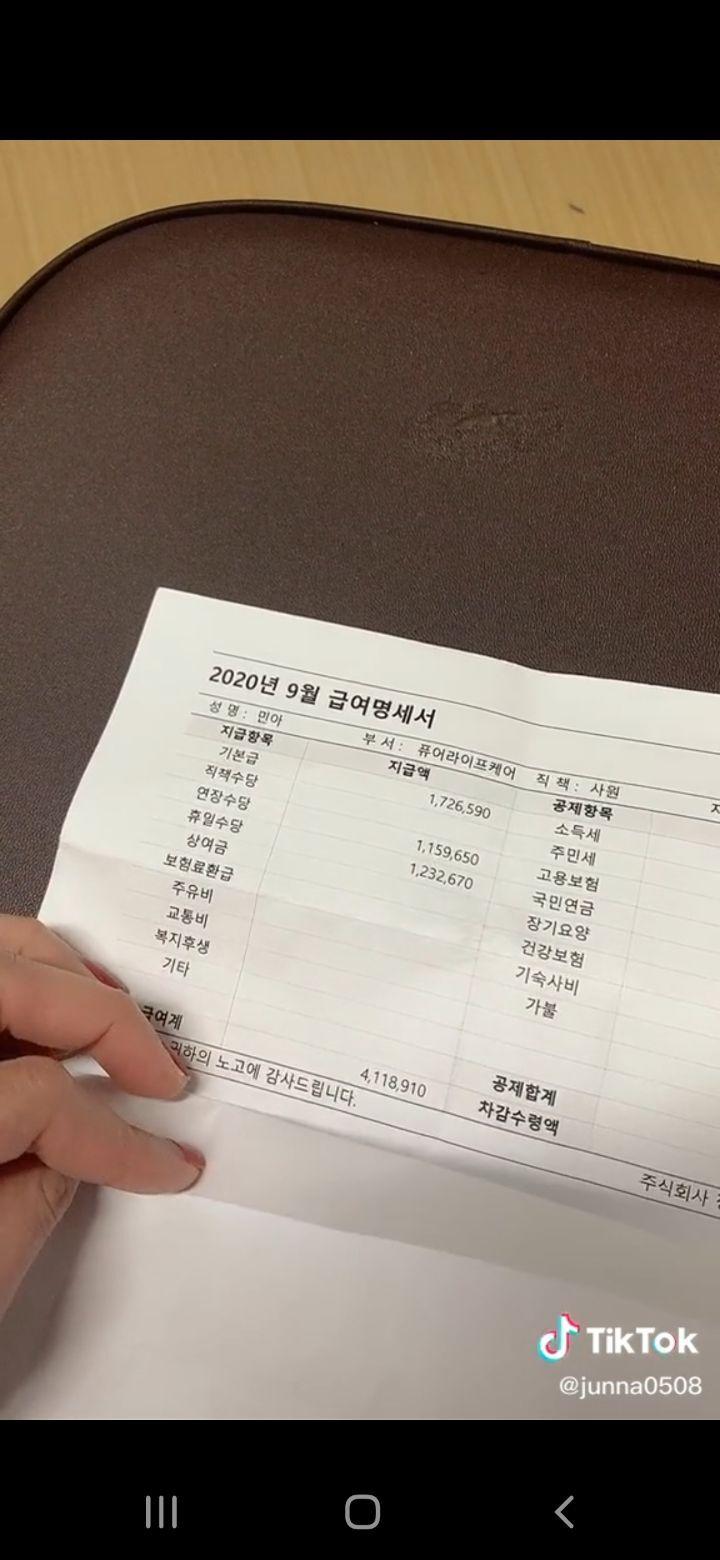 2020년 9월 급여명세서
성 명 : 민아 부 서 : 퓨어라이프케어 직 책 : 사원
지급항목 지급액 공제항목
기본급 1,726,590 소득세
직책수당 주민세
연장수당 1,159,650 고용보험
휴일수당 1,232,670 국민연금
상여금 장기요양
보험료환급 건강보험
주유비 기숙사비
교통비 가불
복지후생
기타
급여계 4,118,910 공제합계
차감수령액
귀하의 노고에 감사드립니다.
주식회사
TikTok
@junna0508